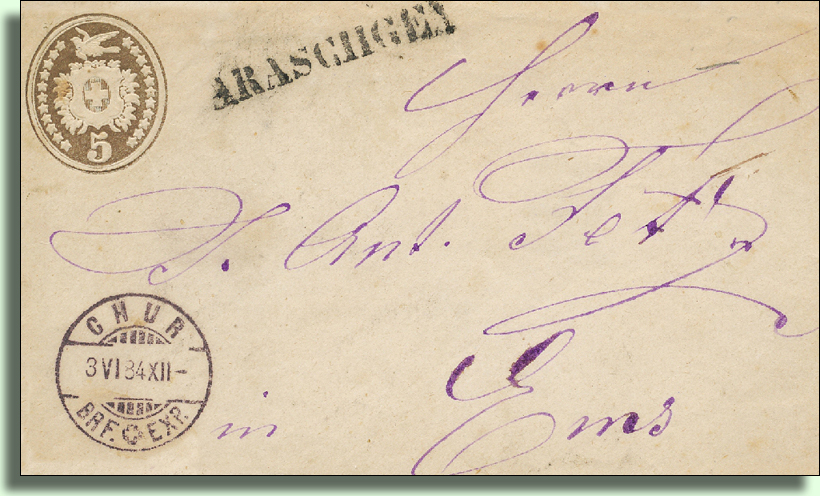 5
ARASCHGEN
Herrn
J. Ant. Fetz
in Ems
CHUR
3 VI 84 XII -
BRF. EXP.